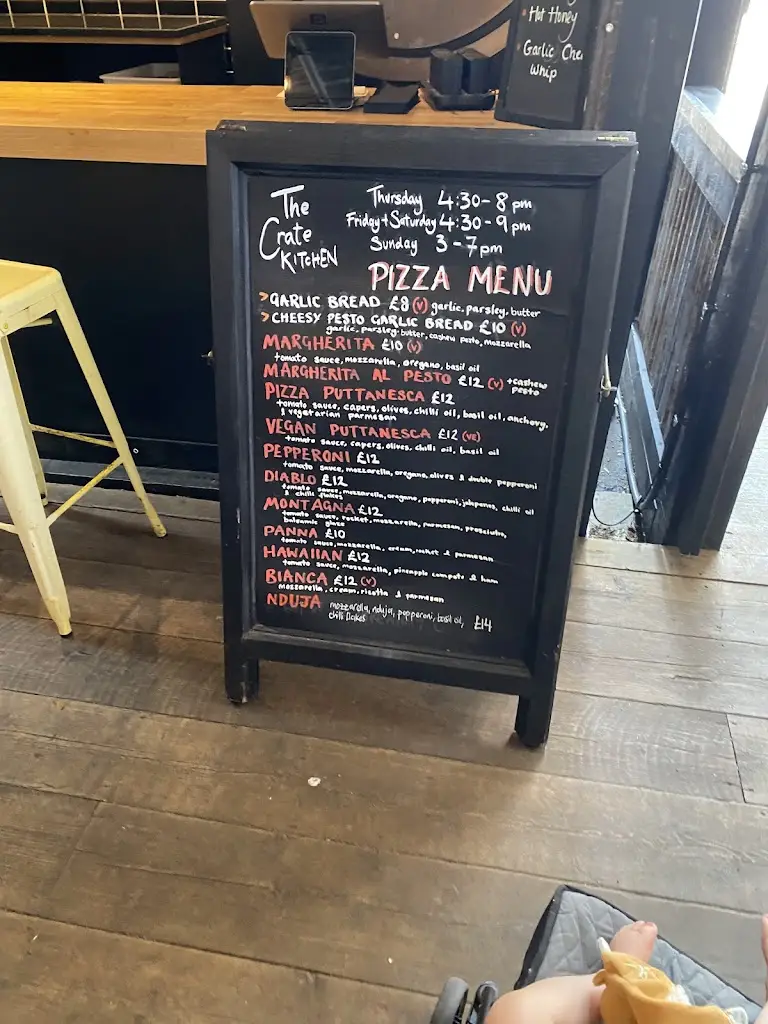 Hot Honey
Garlic
Whip
The
Crate
KITCHEN
Thursday 4:30-8 pm
Friday+Saturday 4:30-9 pm
Sunday 3-7pm
PIZZA MENU
> GARLIC BREAD £8 (V) garlic, parsley, butter
> CHEESY PESTO GARLIC BREAD £10 (V)
garlic, parsley butter, cashew pesto, mozzarella
MARGHERITA £10 (V)
tomato sauce, mozzarella, oregano, basil oil
MARGHERITA AL PESTO £12 (V) +cashew
pesto
PIZZA PUTTANESCA £12
tomato sauce, capers, olives, chilli oil, basil oil, anchovy,
& vegetarian parmesan
VEGAN PUTTANESCA £12 (VE)
tomato sauce, capers, olives, chilli oil, basil oil
PEPPERONI £12
tomato sauce, mozzarella, oregano, olives & double pepperoni
DIABLO £12
tomato sauce, mozzarella, oregano, pepperoni, jalapenos, chilli oil
& chilli flakes
MONTAGNA £12
tomato sauce, rocket, mozzarella, parmesan, prosciutto,
balsamic glaze
PANNA £10
tomato sauce, mozzarella, cream, rocket & parmesan
HAWAIIAN £12
tomato sauce, mozzarella, pineapple compote & ham
BIANCA £12 (V)
mozzarella, cream, ricotta & parmesan
NDUJA mozzarella, nduja, pepperoni, basil oil,
chilli flakes £14